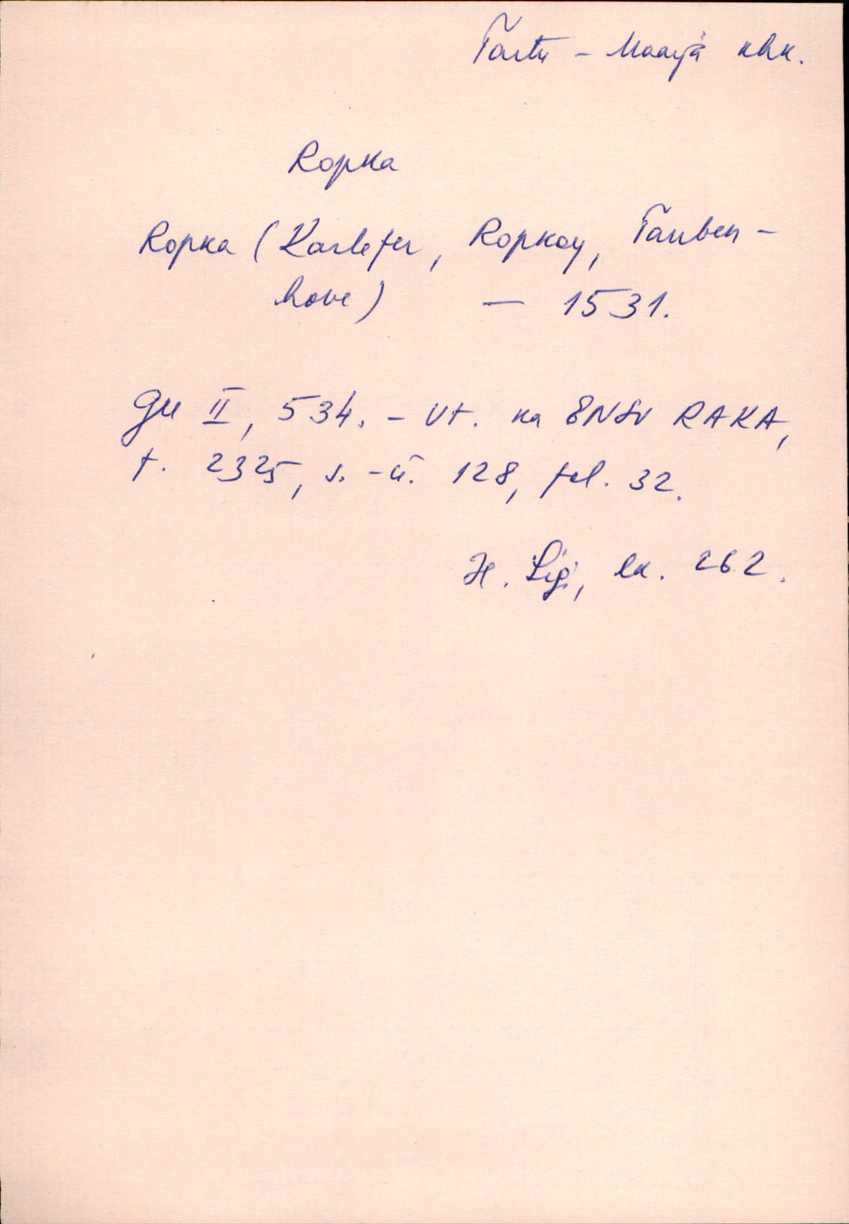 Tartu - Maarja khk.
Ropka
Ropka (Karlefer, Ropkoy, Tauben-
hove) — 1531.
II, 534. - Vt. ka ENSV RAKA,
f. 2325, s.-ü. 128, fol. 32.
H. Ligi, lk. 262.